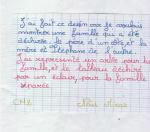 J'ai fait ce dessin car je voulais
montrer une famille qui a été
déchirée, le père d'un côté et la
mère et Stéphane de l'autre.
J'ai représenté un arbre pour la
famille et le tableau déchiré
par un éclair, pour la famille
séparée
CM2